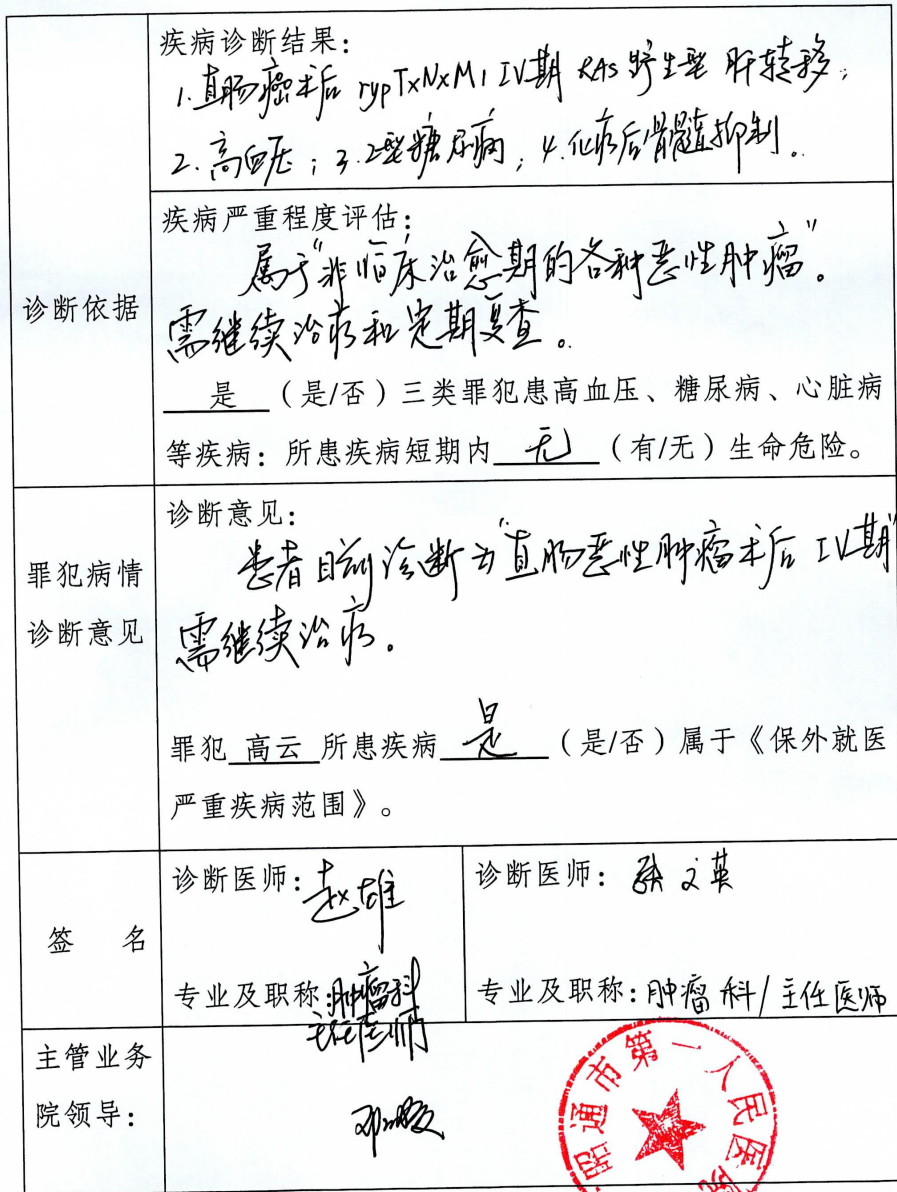 疾病诊断结果:
1.直肠癌术后 rypTxNxM1 IV期 RAS野生型 肝转移;
2.高血压;3.2型糖尿病;4.化疗后骨髓抑制。
疾病严重程度评估:
诊断依据
属于"非临床治愈期的各种恶性肿瘤"。
需继续治疗和定期复查。
是(是/否)三类罪犯患高血压、糖尿病、心脏病
等疾病:所患疾病短期内 无 (有/无)生命危险。
罪犯病情
诊断意见
诊断意见:
患者目前诊断为"直肠恶性肿瘤术后 IV期"
需继续治疗。
罪犯 高云 所患疾病 是 (是/否)属于《保外就医
严重疾病范围》。
签 名
诊断医师:赵雄
诊断医师:张文英
专业及职称:肿瘤科
主任医师
专业及职称:肿瘤科/主任医师
主管业务
院领导:
昭通市第一人民医院